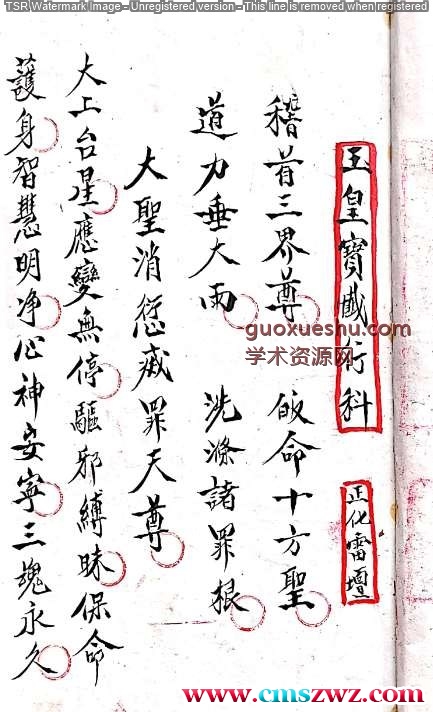 TSR Watermark Image - Unregistered version - This line is removed when registered
玉皇寶懺行科 正化雷壇
稽首三界尊 皈命十方聖
道力垂大雨 洗滌諸罪根
大聖消愆滅罪天尊
大上台星應變無停驅邪縛昧保命
護身智慧明净心神安寧三魂永久
guoxueshu.com
学术资源网
www.cmszwz.com